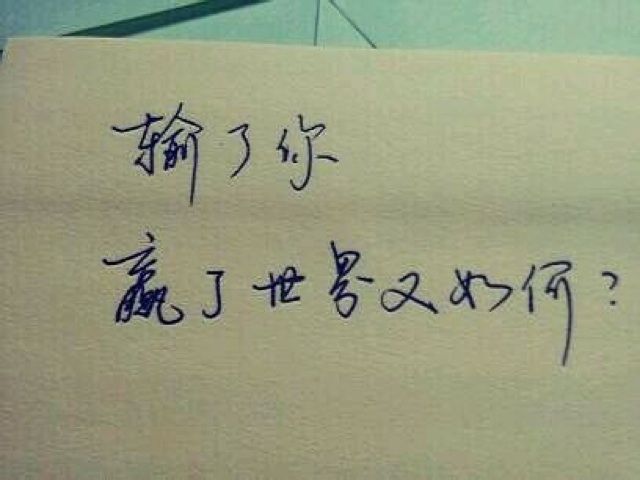 输了你
赢了世界又如何?